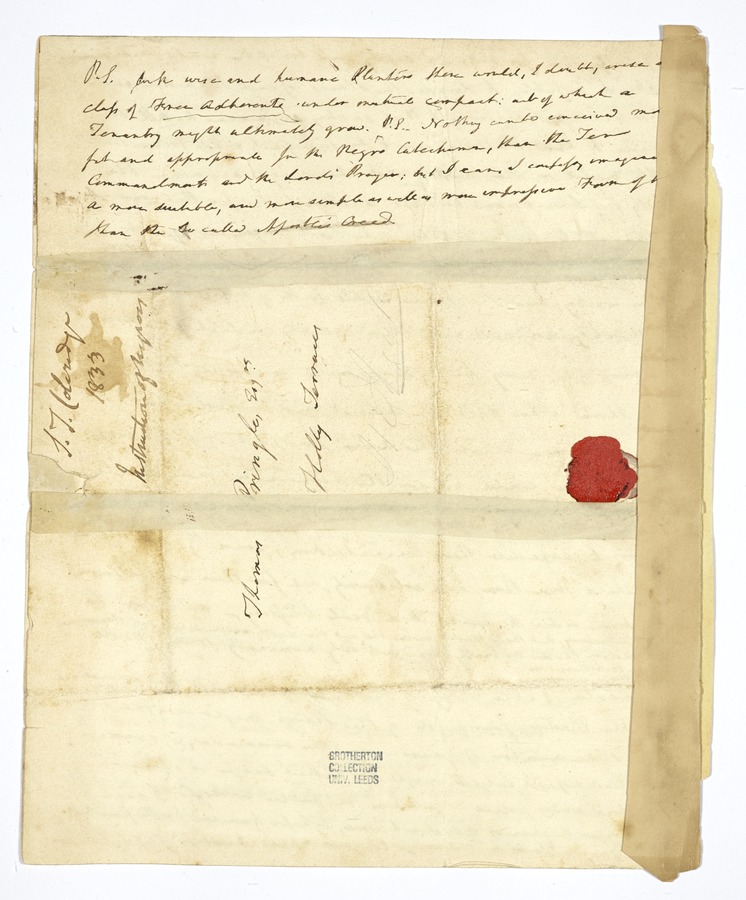 P.S. With wise and humane Planters there would, I doubt, arise a
class of Free Adherents under mutual compact: out of which a
Tenantry might ultimately grow. P.S. Nothing can be conceived mo
fit and appropriate for the Negro Catechumens, than the Ten
Commandments and the Lord's Prayer; but I can, I confess, imagine
a more suitable, and more simple as well as more impressive Form of
than the so called Apostles Creed
S. T. Coleridge
1833
Instruction of Negroes
Thomas Pringle, Esqre
Holly Terrace
BROTHERTON
COLLECTION
UNIV. LEEDS